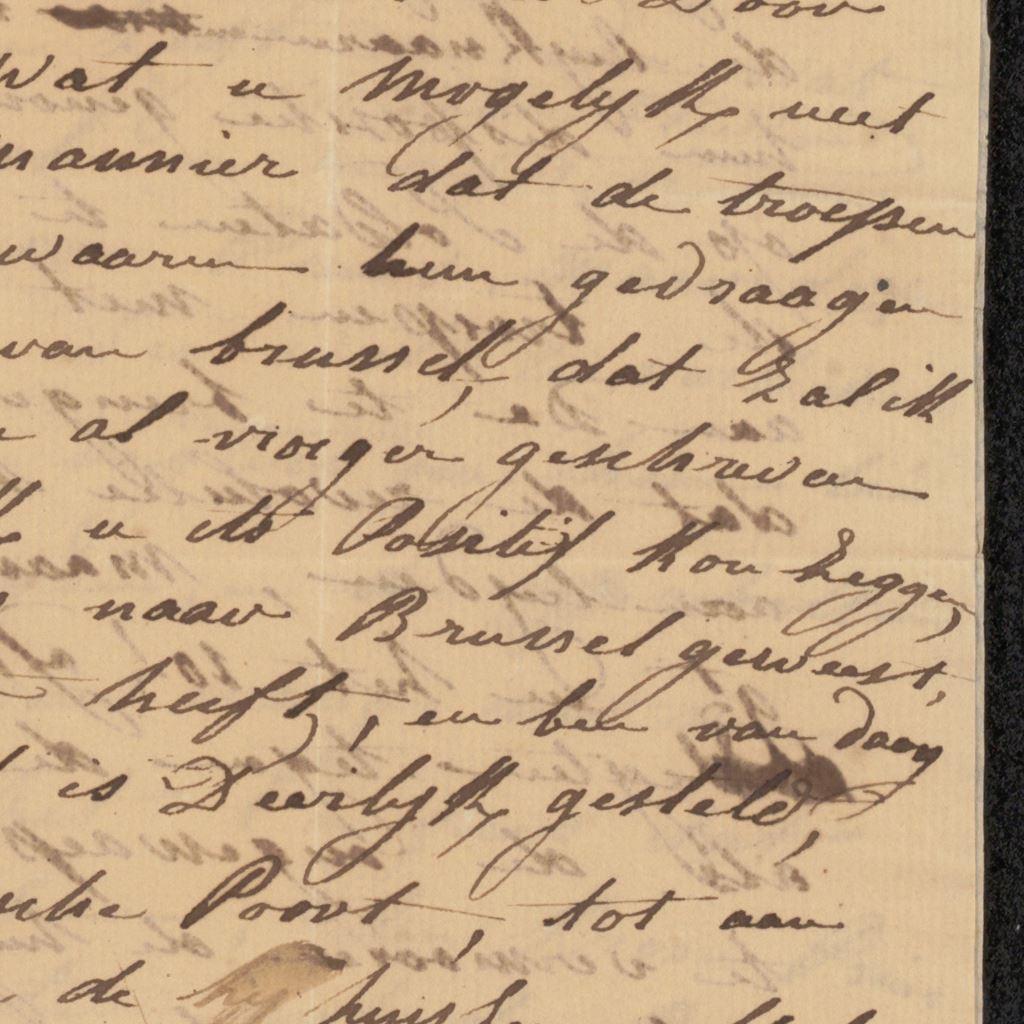 Door
wat u Mogelyk niet
mannier dat de troepen
waaren hun gedraagen
van brussel, dat zal ik
al vroeger geschreven
u its Positif kon zeggen,
naar Brussel geweest,
heeft, en ben van daag
is Deerlyk gesteld,
sche Poort, tot aan
de